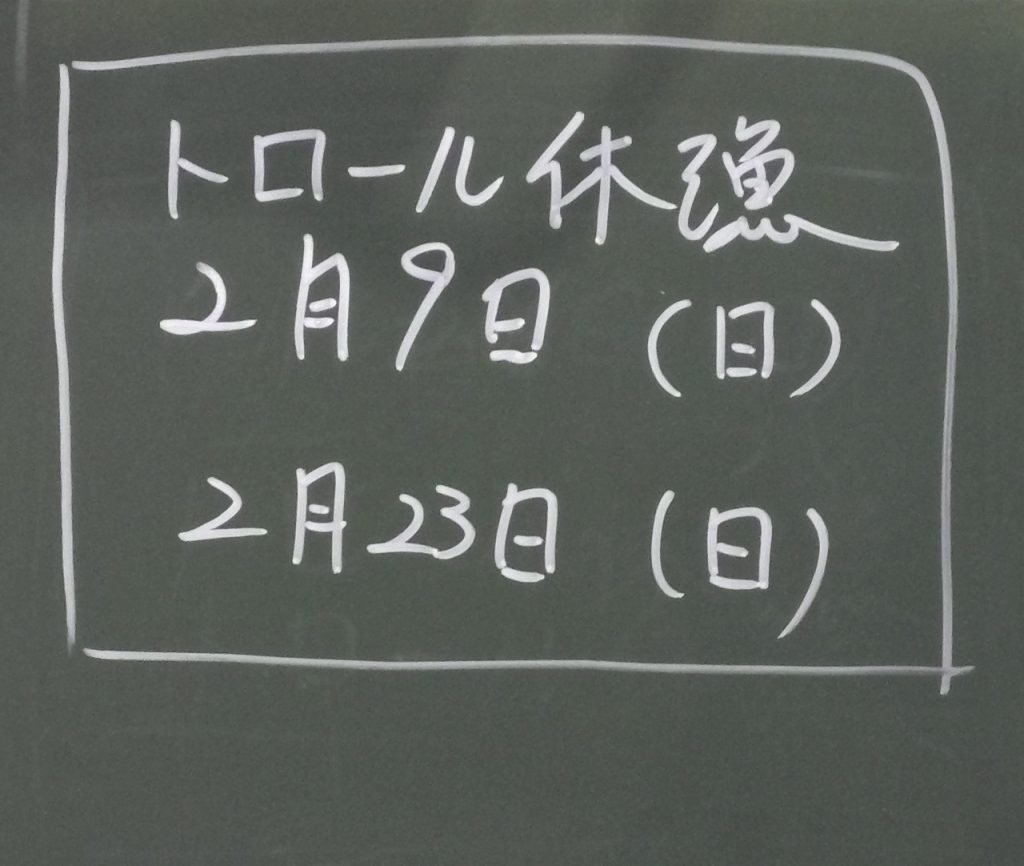 トロール休漁
2月9日 (日)
2月23日 (日)